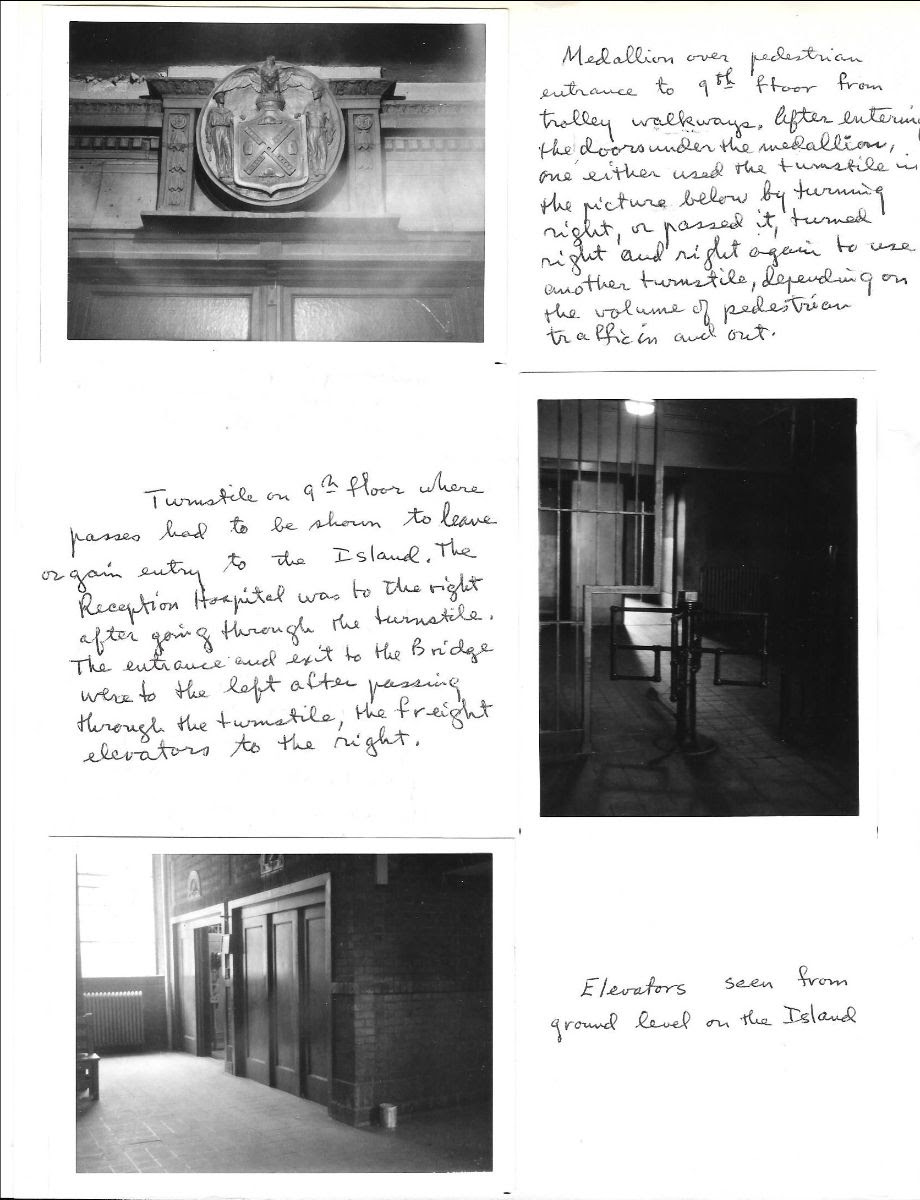 Medallion over pedestrian
entrance to 9th floor from
trolley walkways. After entering
the doors under the medallion,
one either used the turnstile in
the picture below by turning
right, or passed it, turned
right and right again to use
another turnstile, depending on
the volume of pedestrian
traffic in and out.
Turnstile on 9th floor where
passes had to be shown to leave
or gain entry to the Island. The
Reception Hospital was to the right
after going through the turnstile.
The entrance and exit to the Bridge
were to the left after passing
through the turnstile, the freight
elevators to the right.
Elevators seen from
ground level on the Island